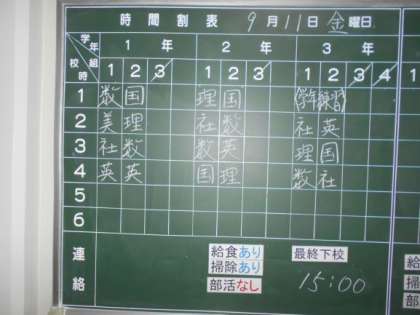 時間割表 9月11日金曜日
学年 1年 2年 3年
校時 組 1 2 3 1 2 3 1 2 3 4
1 数 国 理 国 (学年練習)
2 美 理 社 数 社 英
3 社 数 数 英 理 国
4 英 英 国 理 数 社
5
6
連絡
給食あり 最終下校
掃除あり
部活なし 15:00
1
給
掃
部